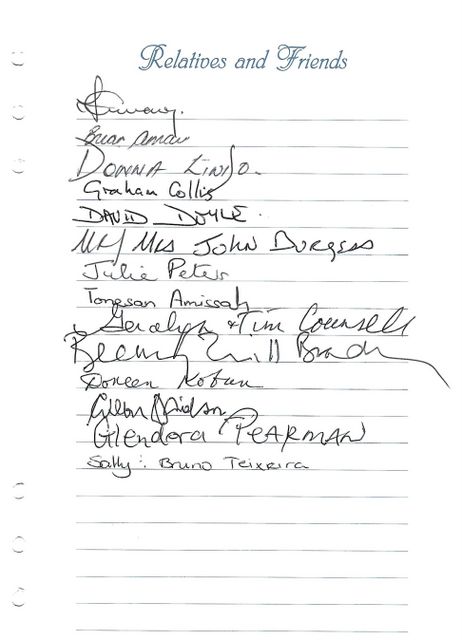 Relatives and Friends
Brian
Donna
Graham Collis
DAVID DOYLE.
Mr/Mrs JOHN BURGESS
Julie Peters
Tongsan Amissah
Geralyn & Tim Counsell
Brady
Doreen
Glendora PEARMAN
Sally : Bruno Teixeira